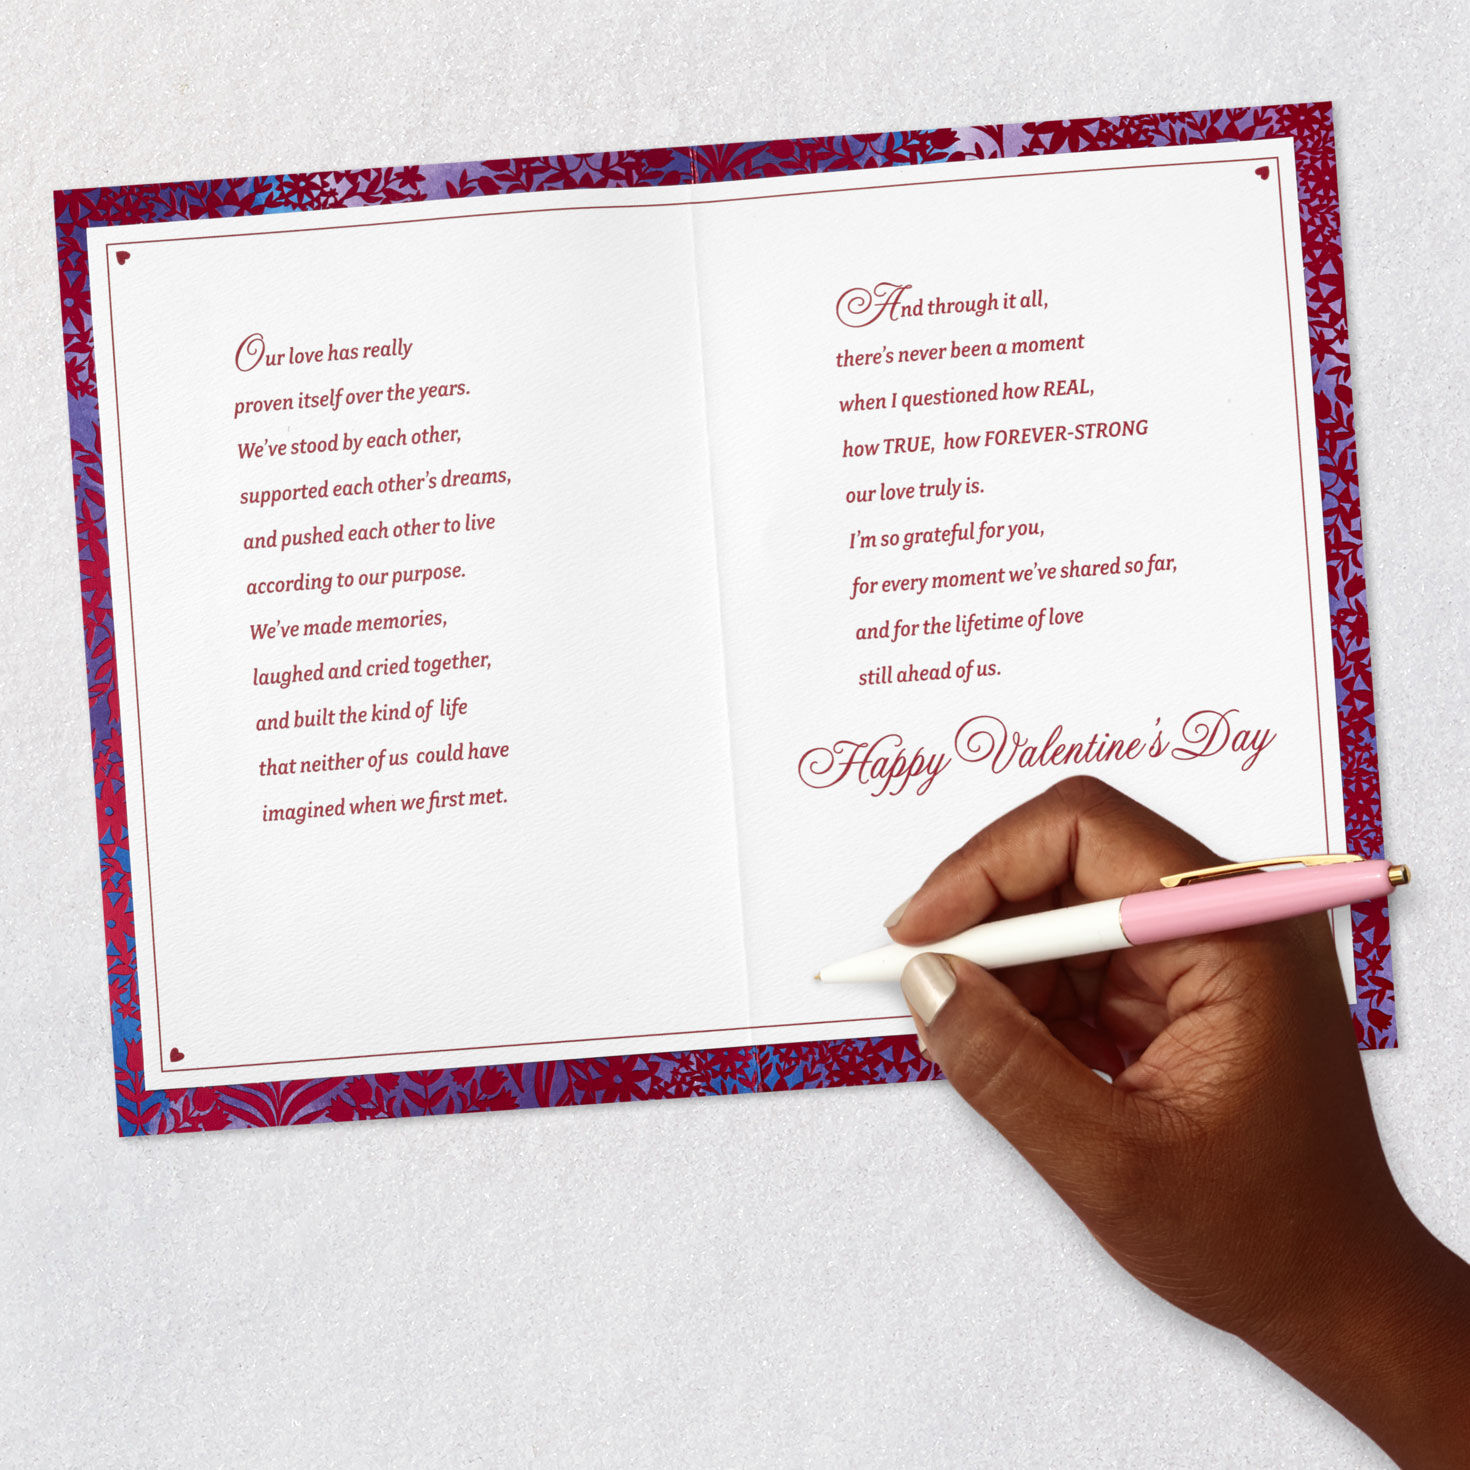 Our love has really
proven itself over the years.
We've stood by each other,
supported each other's dreams,
and pushed each other to live
according to our purpose.
We've made memories,
laughed and cried together,
and built the kind of life
that neither of us could have
imagined when we first met.
And through it all,
there's never been a moment
when I questioned how REAL,
how TRUE, how FOREVER-STRONG
our love truly is.
I'm so grateful for you,
for every moment we've shared so far,
and for the lifetime of love
still ahead of us.
Happy Valentine's Day